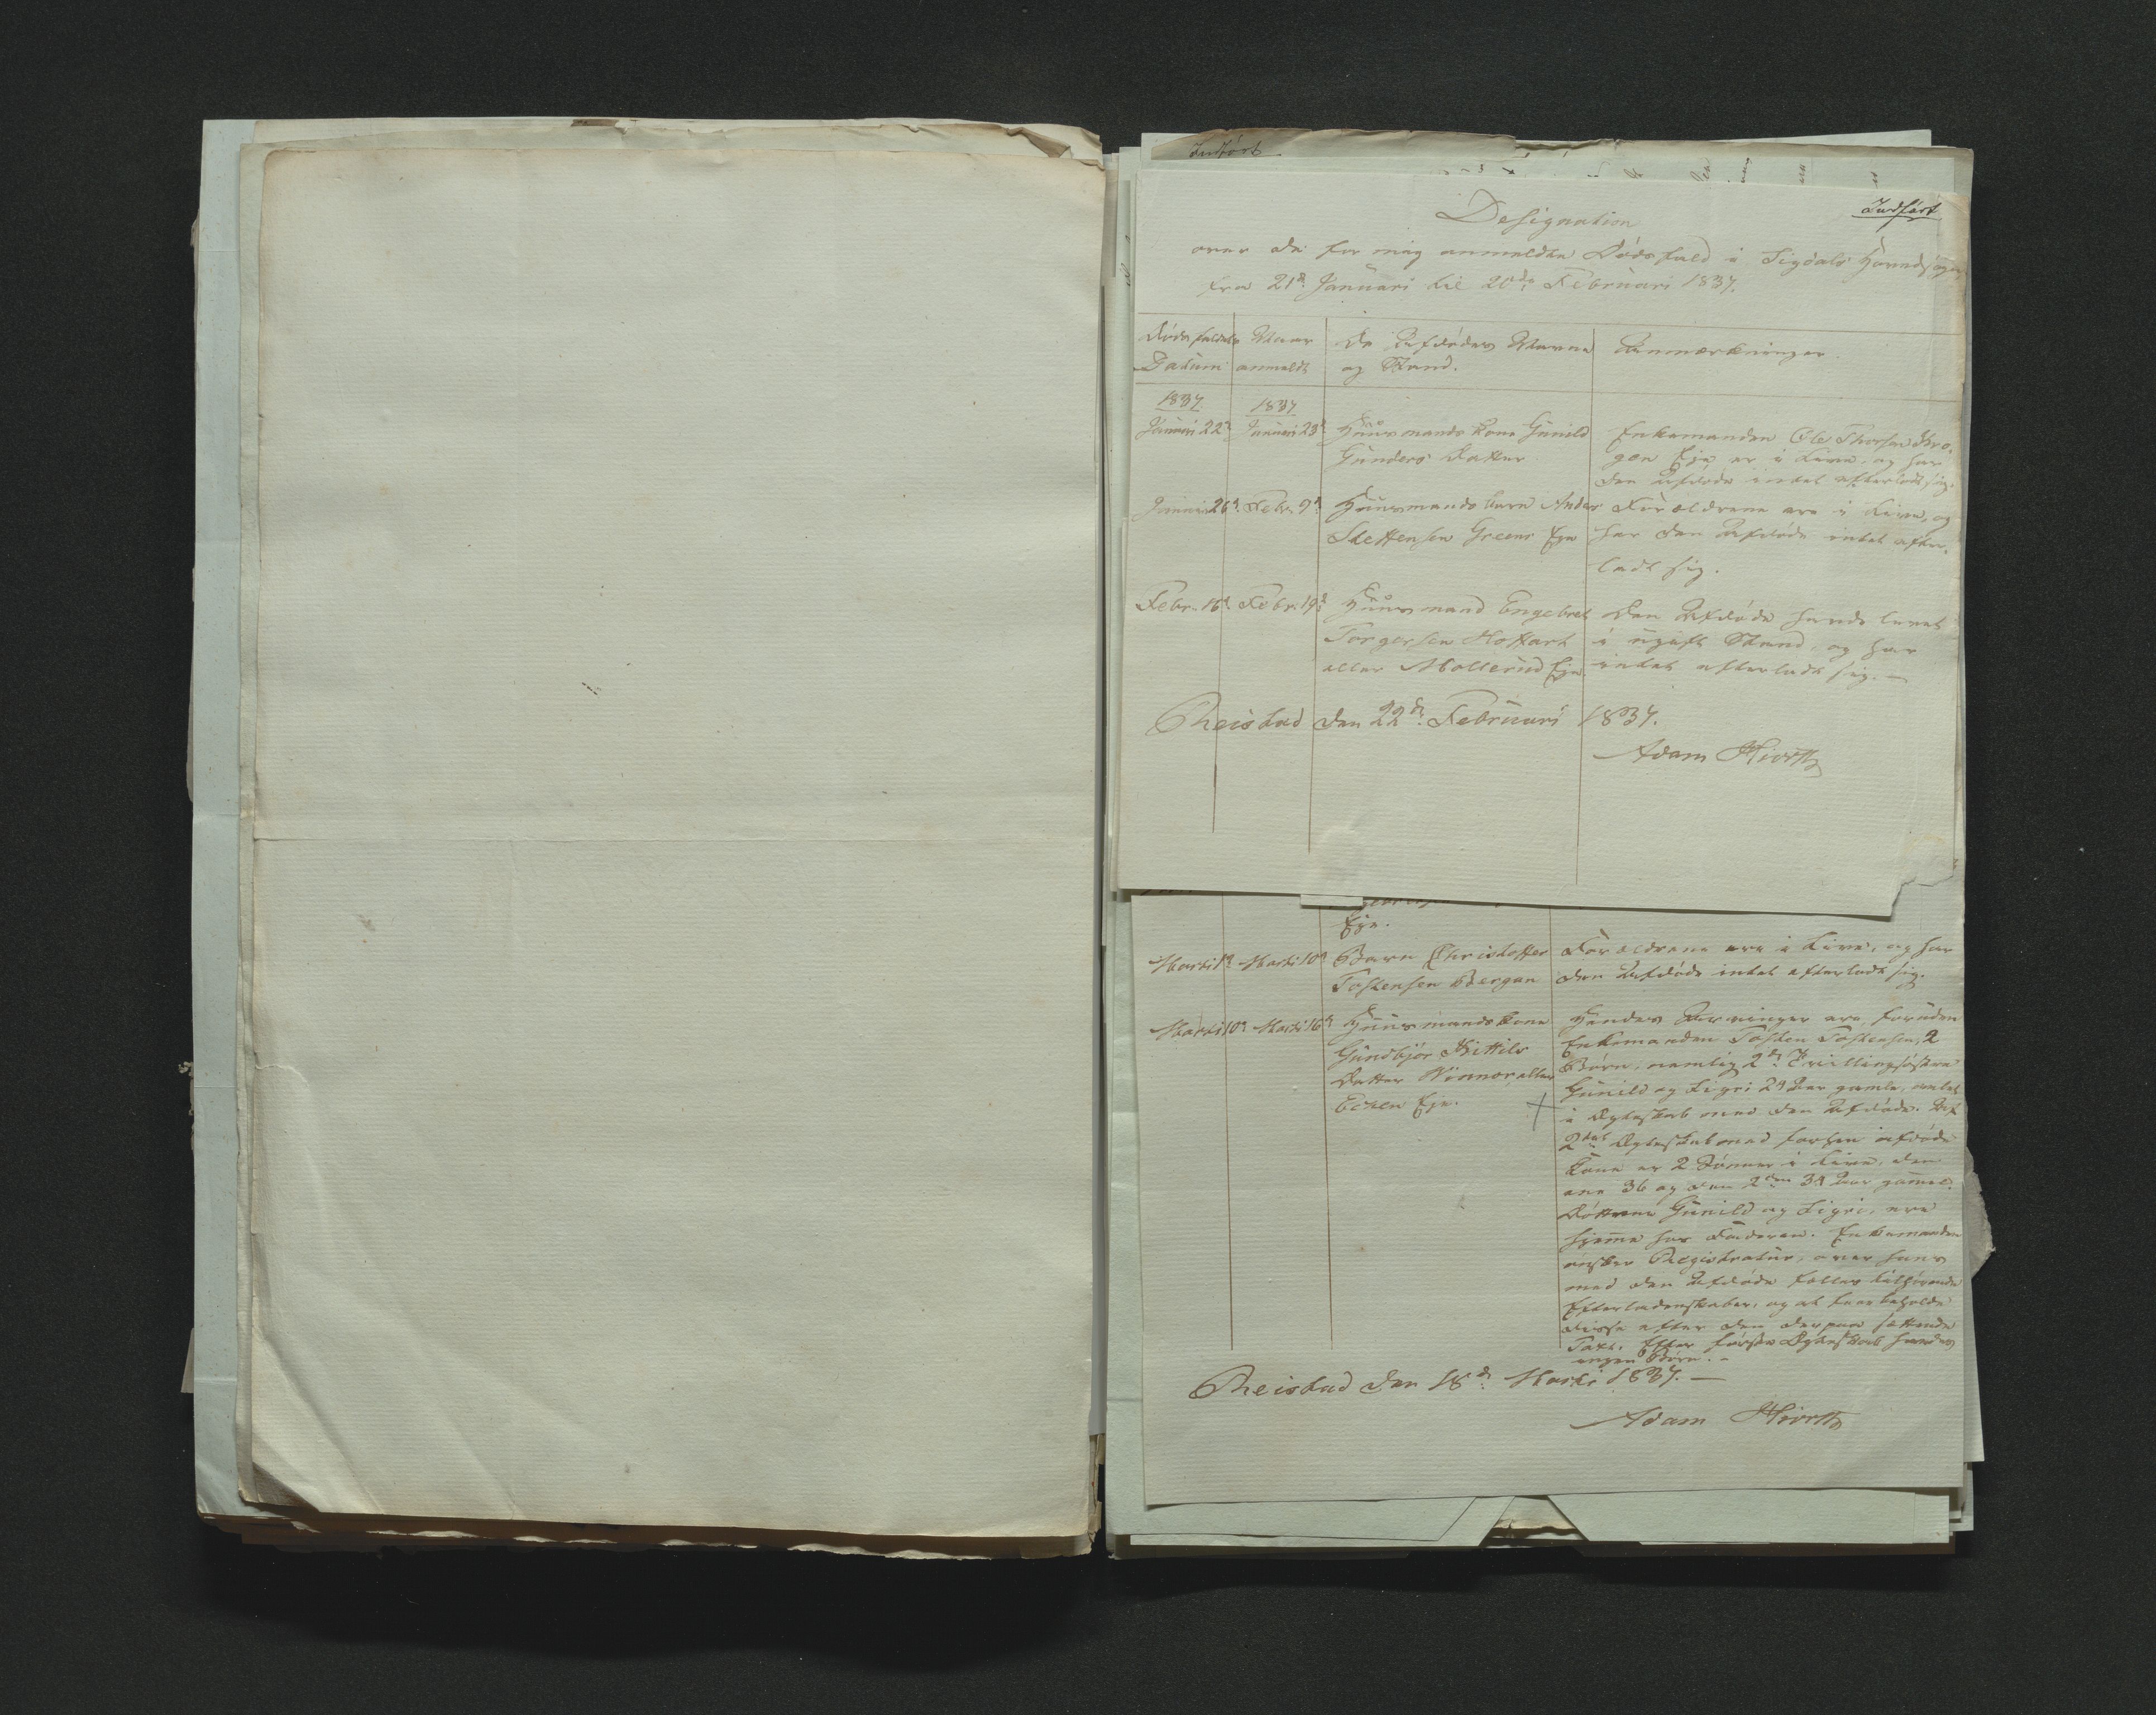 Indført
Indført
Designation
over de for mig anmeldte Dødsfald i Sigdals Hovedsogn
fra 21de Januari til 20de Februari 1837.
Dødsfaldets Datum
Naar anmeldt
De Afdødes Navne og Stand.
Anmærkninger.
1837
1837
Januari 22de
Januari 23de
Huusmands Kone Gunild
Gunders Datter
Enkemanden Ole Thorsen
Eje er i Live, og har
den Afdøde intet efterladt sig.
Januari 26de
Febr. 9de
Huusmands Barn Anders
Steffensen Greens Eje
Forældrene ere i Live, og
har den Afdøde intet efter-
ladt sig.
Febr. 16de
Febr. 19de
Huusmand Engebret
Torgersen Hoffart
eller Mollerud Eje.
Den Afdøde havde levet
i ugift Stand, og har
intet efterladt sig. —
Reistad den 22de Februari 1837.
Adam Hiorth
Eje.
Marti 1de
Marti 10de
Barn Christoffer
Tostensen Bergan
Forældrene ere i Live, og har
den Afdøde intet efterladt sig.
Marti 10de
Marti 16de
Huusmands Kone
Gundbjør Kittils
Datter eller
Echen Eje.
Hendes Arvinger ere, foruden
Enkemanden Tosten Tostensen, 2
Børn, nemlig 2de Tvillingsøstre
Gunild og Sigri 24 Aar gamle, avlet
i Ægteskab med den Afdøde. Af
2det Ægteskab med forhen afdøde
Kone er 2 Sønner i Live, den
ene 36 og den 2den 34 Aar gammel.
Døttrene Gunild og Sigri, ere
hjemme hos Faderen. Enkemanden
ønsker Registratur, over hans
med den Afdøde fælles tilhørende
Efterladenskaber, og at faae beholde
disse efter den derpaa sættende
Taxt. Efter første Ægteskab haves
ingen Børn. —
Reistad den 18de Marti 1837. —
Adam Hiorth